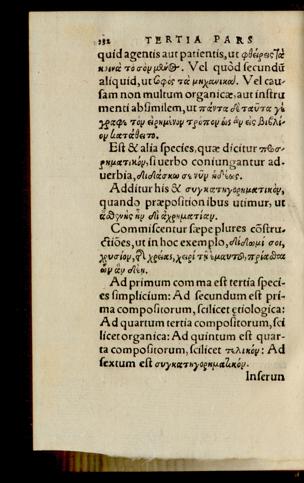 232 TERTIA PARS
quid agentis aut patientis, ut φθείρεις τὰ
κοινὰ
aliquid, ut σοφὸς τὰ μηχανικά. Vel cau-
sam non multum organicæ, aut instru
menti absimilem, ut πάντα δὲ ταῦτα γέ
γραφε τὸν εἰρημένον τρόπον ὡς ἂν εἰς βιβλί-
ον κατάθειτο.
Est & alia species, quæ dicitur
ρηματικόν, si verbo coniungantur ad-
uerbia, διδάσκω σε νῦν ἡδέως.
Additur his & συγκατηγορηματικόν,
quando præpositionibus utimur, ut
ἦν δι' ἀχρηματίαν.
Commiscentur sæpe plures cōstru-
ctiōes, ut in hoc exemplo, δίδωμί σοι,
χρυσίον, χρείας, χειρὶ τῇ ἐμαυτοῦ,
ὧν ἂν
Ad primum comma est tertia speci-
es simplicium: Ad secundum est pri-
ma compositorum, scilicet ętiologica:
Ad quartum tertia compositorum, sci
licet organica: Ad quintum est quar-
ta compositorum, scilicet τελικόν: Ad
sextum est συγκατηγορηματικόν.
Inserun